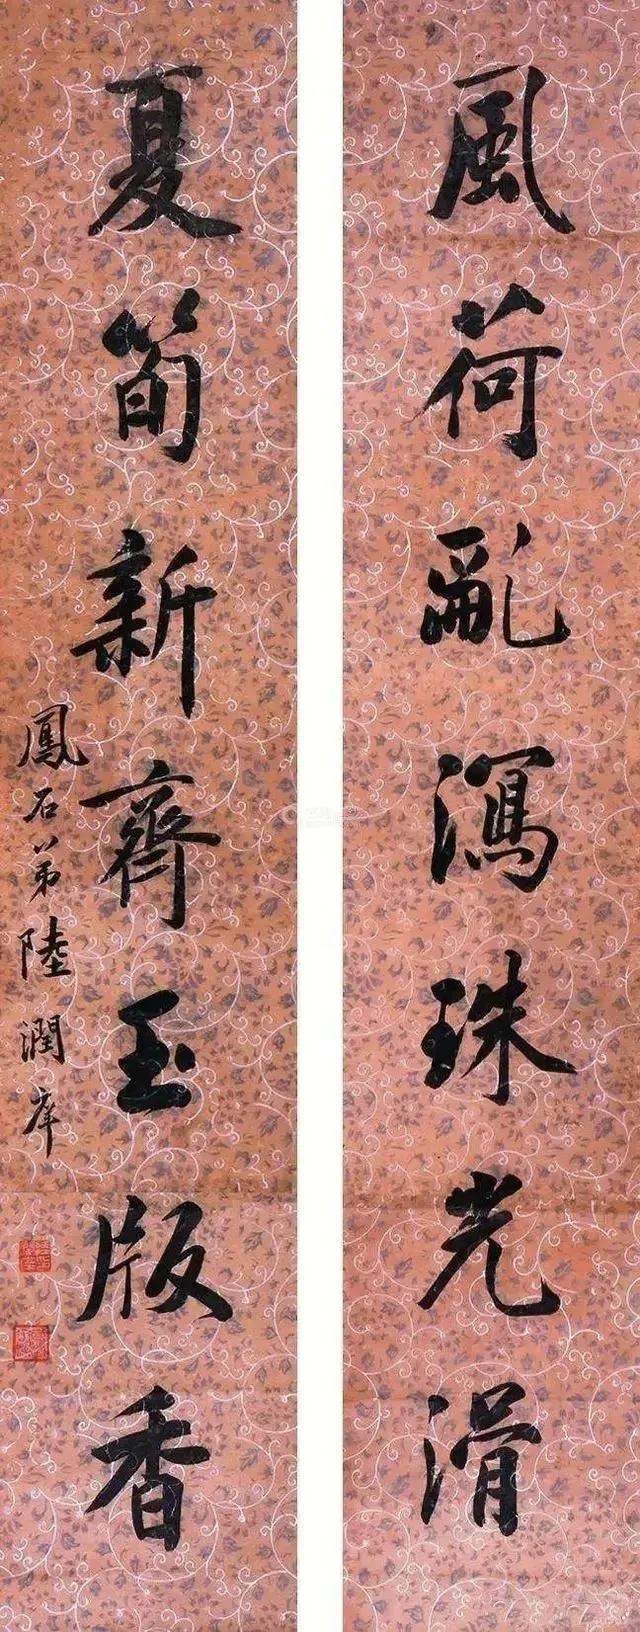 風荷亂瀉珠光滑
夏筍新齊玉版香
鳳石弟陸潤庠